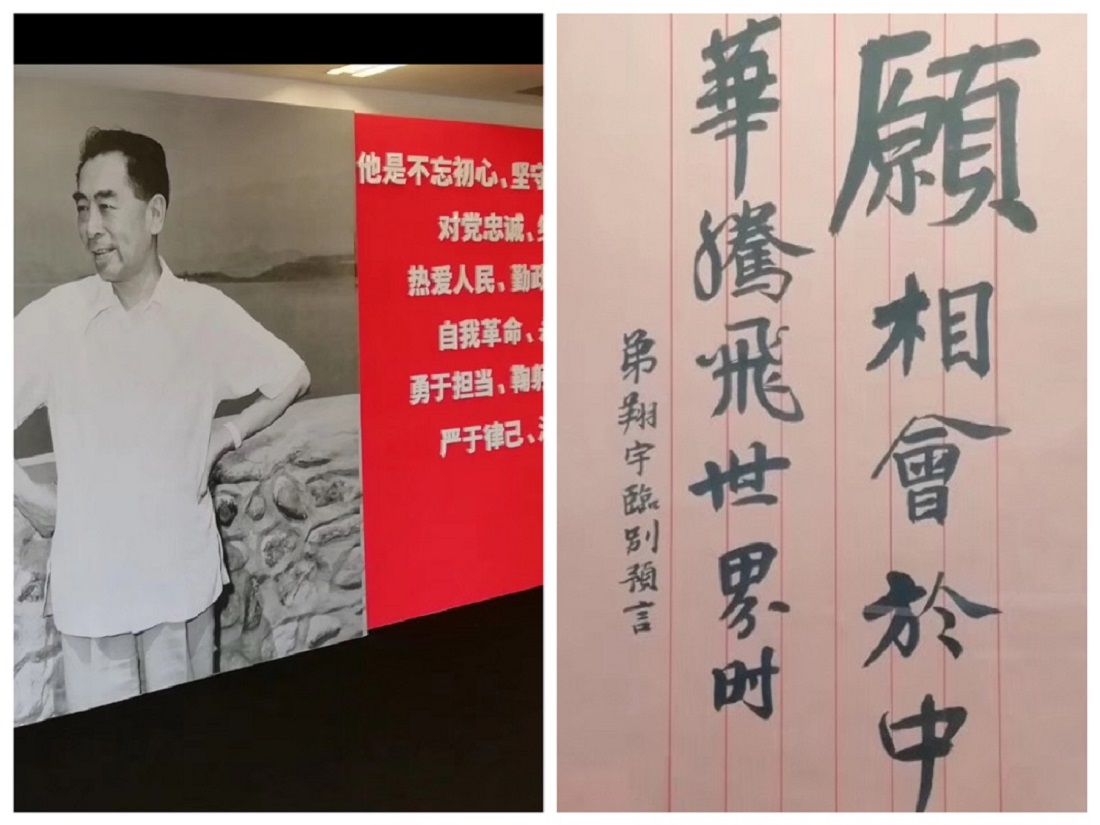 他是不忘初心、坚守
对党忠诚、
热爱人民、勤政
自我革命、
勇于担当、鞠躬
严于律己、
願相會於中
華騰飛世界时
弟翔宇臨別預言